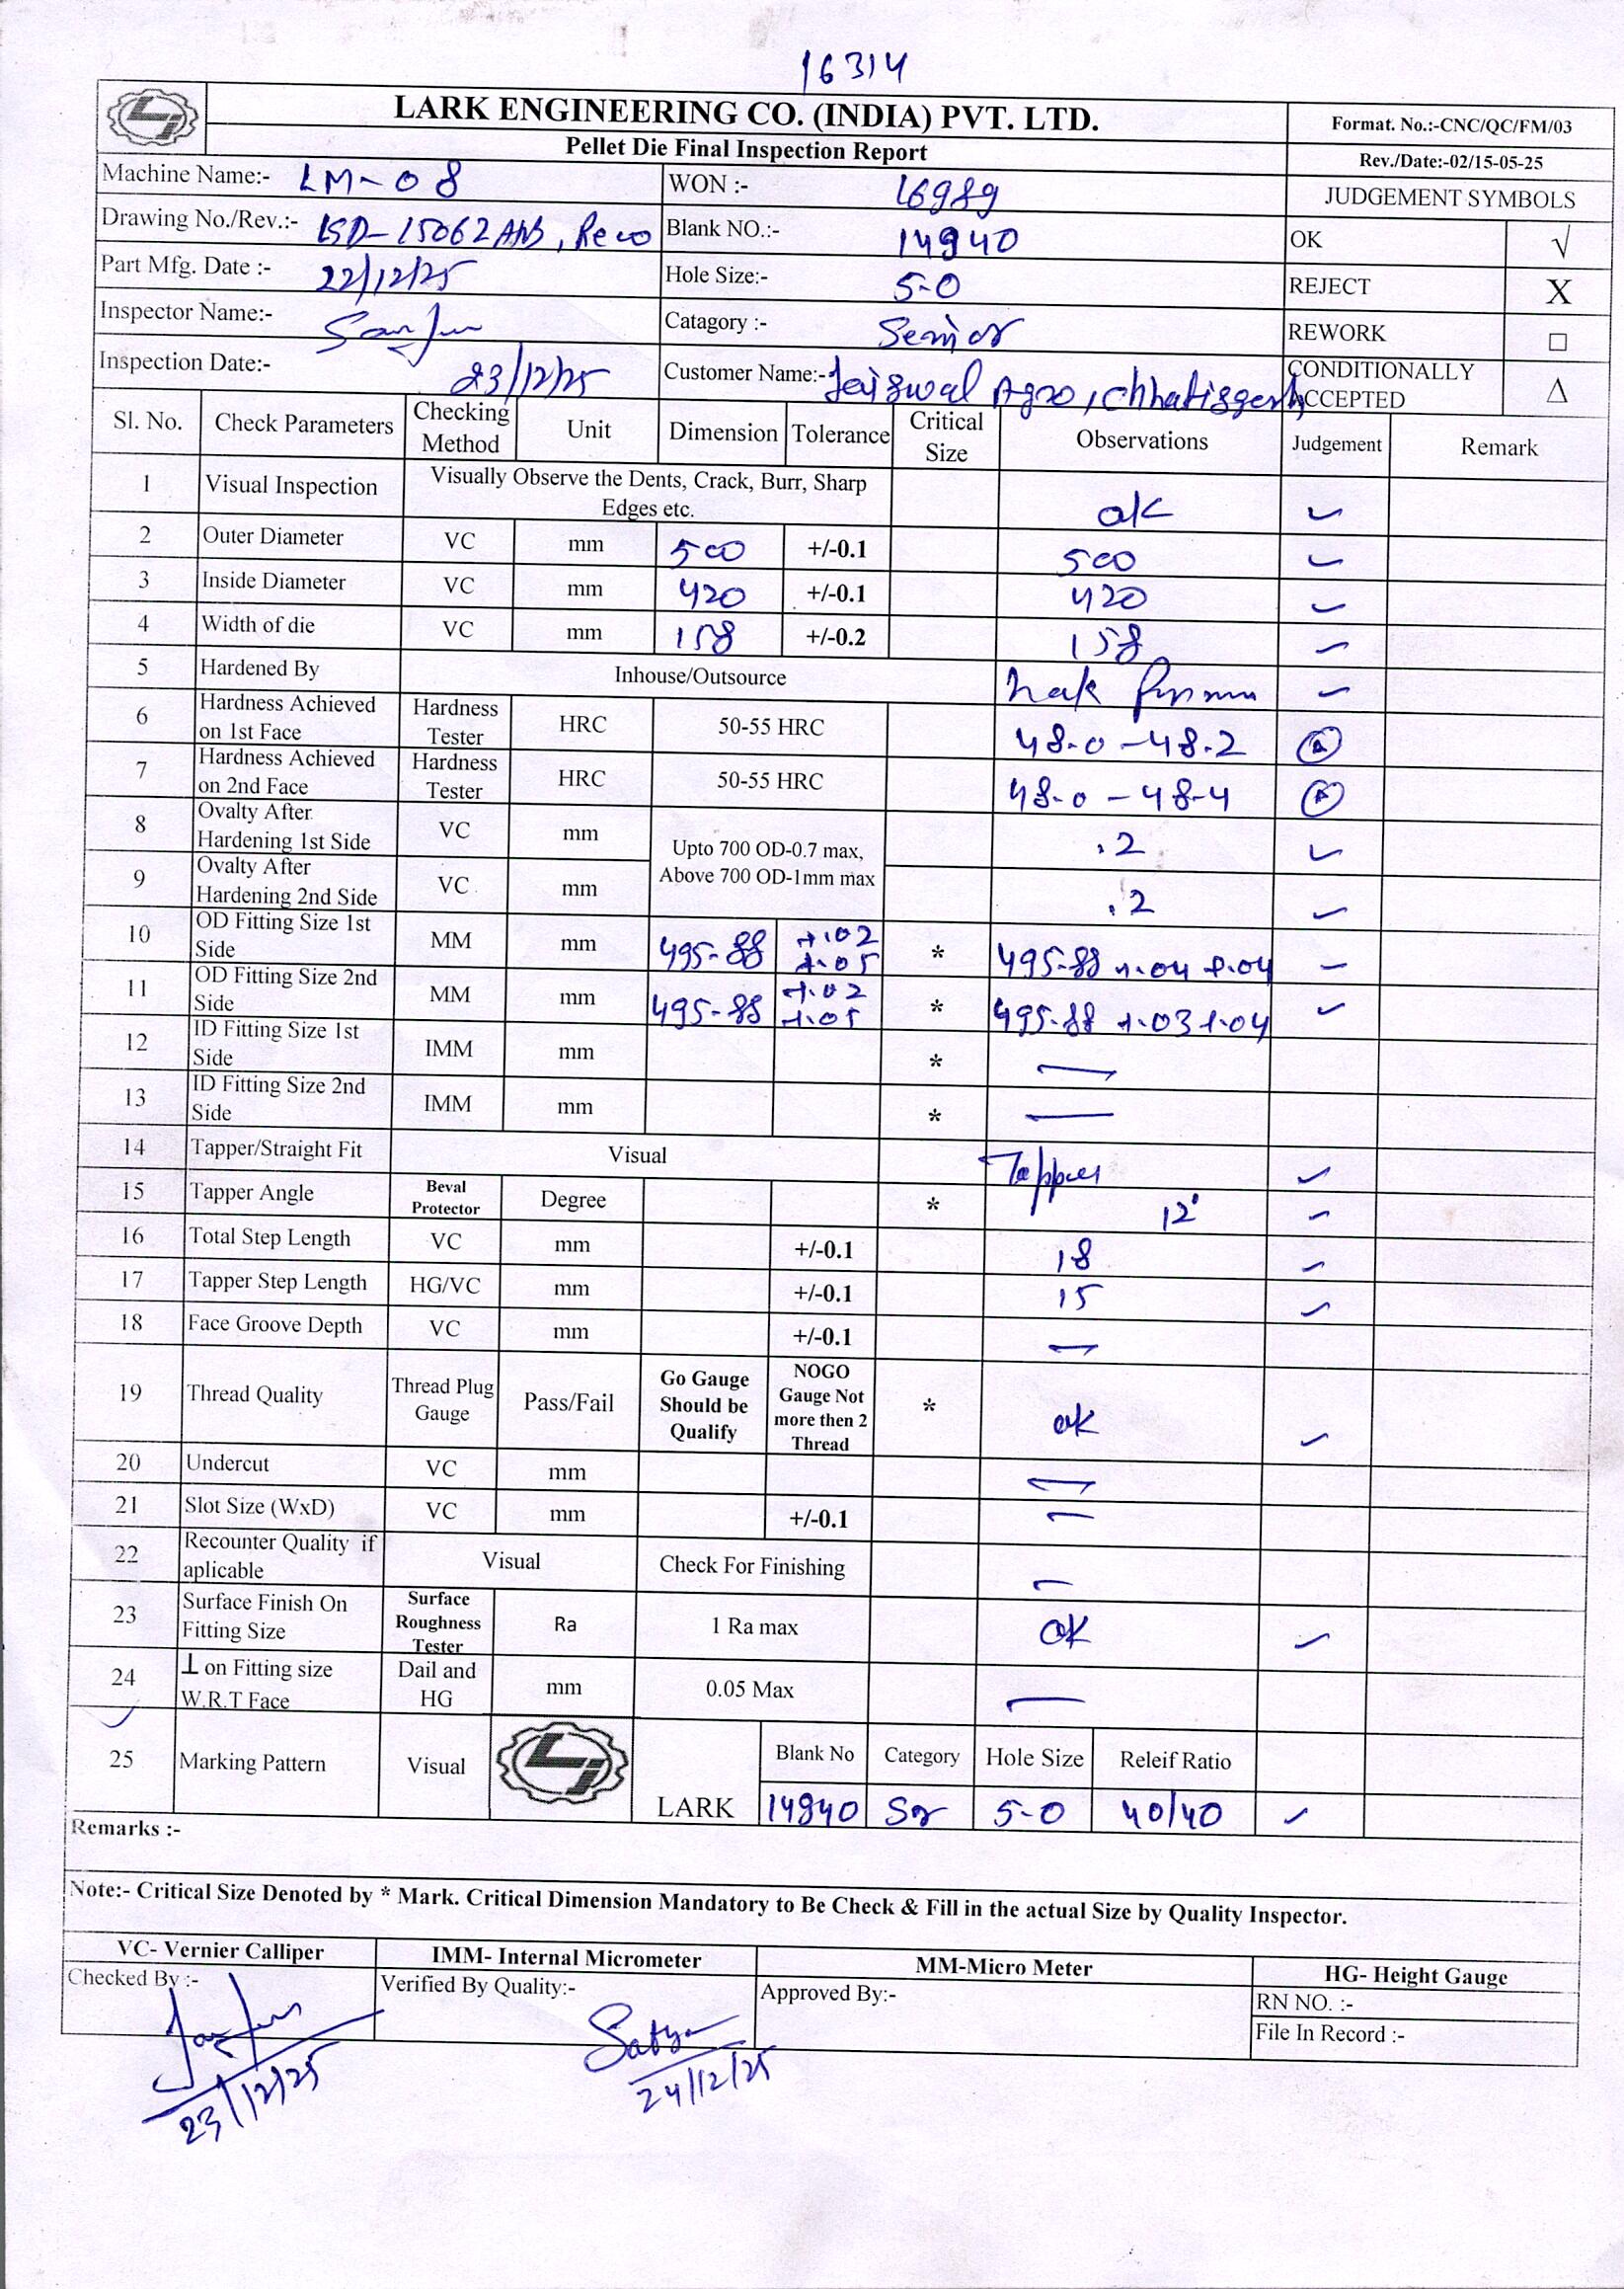 16314
LARK ENGINEERING CO. (INDIA) PVT. LTD.
Pellet Die Final Inspection Report
Format. No.:-CNC/QC/FM/03
Rev./Date:-02/15-05-25
Machine Name:- LM-08 WON :- 16989 JUDGEMENT SYMBOLS
Drawing No./Rev.:- LSD-15062 Blank NO.:- 14940 OK √
Part Mfg. Date :- 22/12/25 Hole Size:- 5-0 REJECT X
Inspector Name:- Catagory :- Senior REWORK □
Inspection Date:- 23/12/25 Customer Name:- Jaiswal Agro, Chhatisgerh CONDITIONALLY ACCEPTED Δ
Sl. No. Check Parameters Checking Method Unit Dimension Tolerance Critical Size Observations Judgement Remark
1 Visual Inspection Visually Observe the Dents, Crack, Burr, Sharp Edges etc. ok ✓
2 Outer Diameter VC mm 500 +/-0.1 500 ✓
3 Inside Diameter VC mm 420 +/-0.1 420 ✓
4 Width of die VC mm 158 +/-0.2 158 ✓
5 Hardened By Inhouse/Outsource ✓
6 Hardness Achieved on 1st Face Hardness Tester HRC 50-55 HRC 48-0 - 48-2
7 Hardness Achieved on 2nd Face Hardness Tester HRC 50-55 HRC 48-0 - 48-4
8 Ovalty After Hardening 1st Side VC mm Upto 700 OD-0.7 max, Above 700 OD-1mm max .2 ✓
9 Ovalty After Hardening 2nd Side VC mm .2 ✓
10 OD Fitting Size 1st Side MM mm 495-88 +.02 +.05 * 495-88 +.04 +.04 ✓
11 OD Fitting Size 2nd Side MM mm 495-88 +.02 +.05 * 495-88 +.03 +.04 ✓
12 ID Fitting Size 1st Side IMM mm * —
13 ID Fitting Size 2nd Side IMM mm * —
14 Tapper/Straight Fit Visual Tapper ✓
15 Tapper Angle Beval Protector Degree * 12° ✓
16 Total Step Length VC mm +/-0.1 18 ✓
17 Tapper Step Length HG/VC mm +/-0.1 15 ✓
18 Face Groove Depth VC mm +/-0.1 —
19 Thread Quality Thread Plug Gauge Pass/Fail Go Gauge Should be Qualify NOGO Gauge Not more then 2 Thread * ok ✓
20 Undercut VC mm —
21 Slot Size (WxD) VC mm +/-0.1 —
22 Recounter Quality if aplicable Visual Check For Finishing —
23 Surface Finish On Fitting Size Surface Roughness Tester Ra 1 Ra max ok ✓
24 ⊥ on Fitting size W.R.T Face Dail and HG mm 0.05 Max —
25 Marking Pattern Visual LARK Blank No Category Hole Size Releif Ratio
14940 Sr 5-0 40/40 ✓
Remarks :-
Note:- Critical Size Denoted by * Mark. Critical Dimension Mandatory to Be Check & Fill in the actual Size by Quality Inspector.
VC- Vernier Calliper IMM- Internal Micrometer MM-Micro Meter HG- Height Gauge
Checked By :- Verified By Quality:- Approved By:- RN NO. :-
File In Record :-
Satya
23/12/25 24/12/25